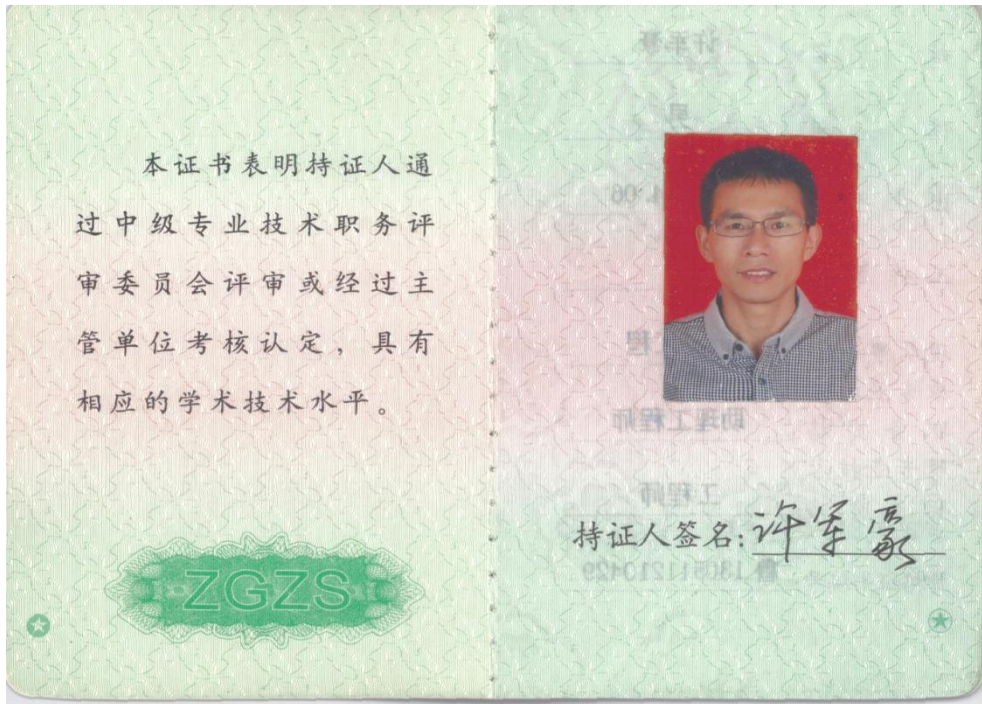 本证书表明持证人通
过中级专业技术职务评
审委员会评审或经过主
管单位考核认定，具有
相应的学术技术水平。
ZGZS
助理工程师
工程师
持证人签名：许军豪